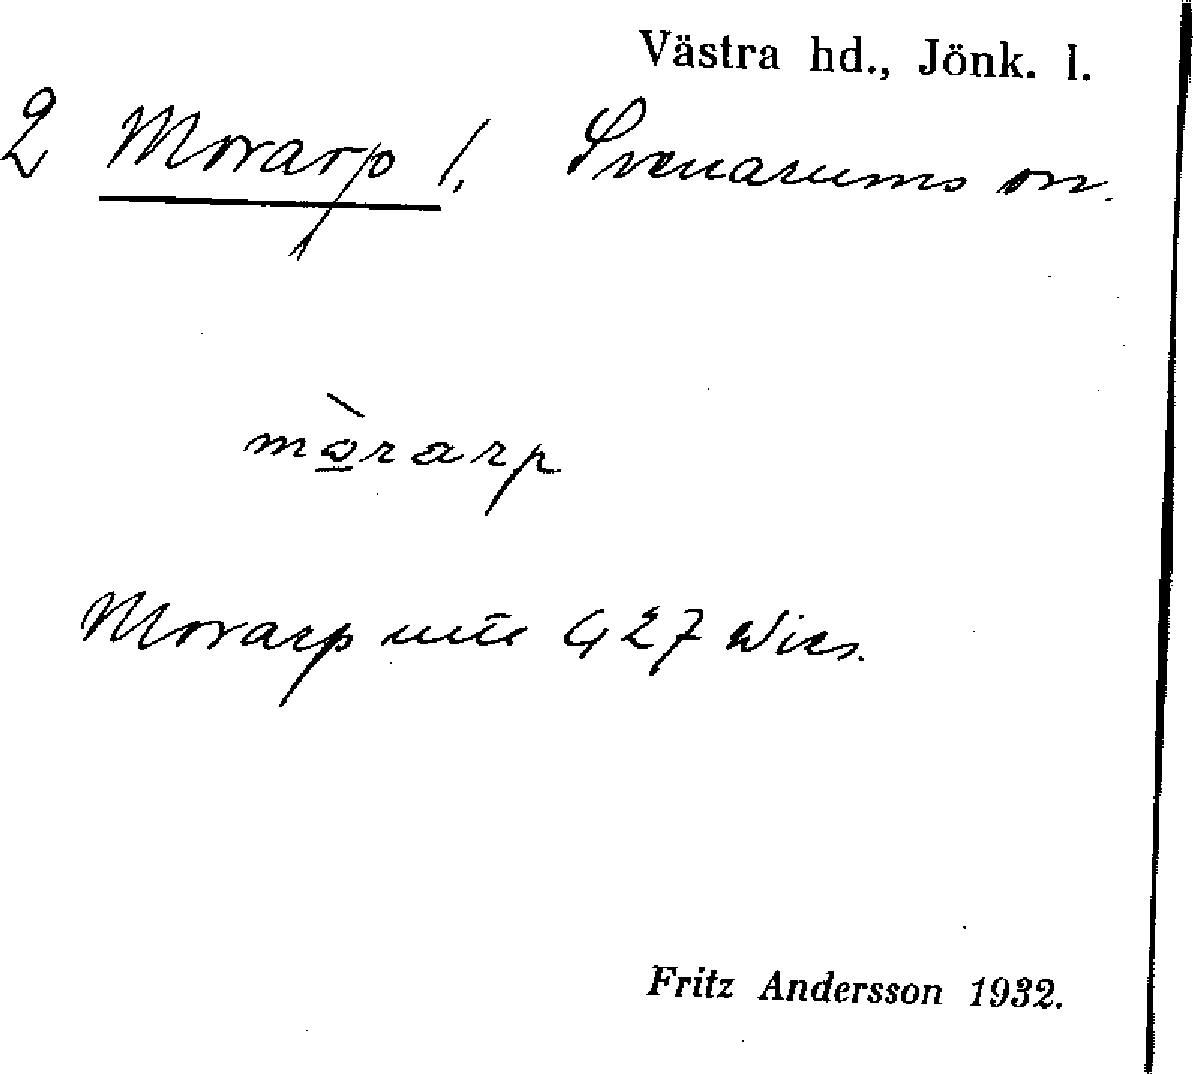 Västra hd., Jönk. l.
2 Morarp l, Svenarums sn.
mò̲rarp
Morarp 427 Wies.
Fritz Andersson 1932.